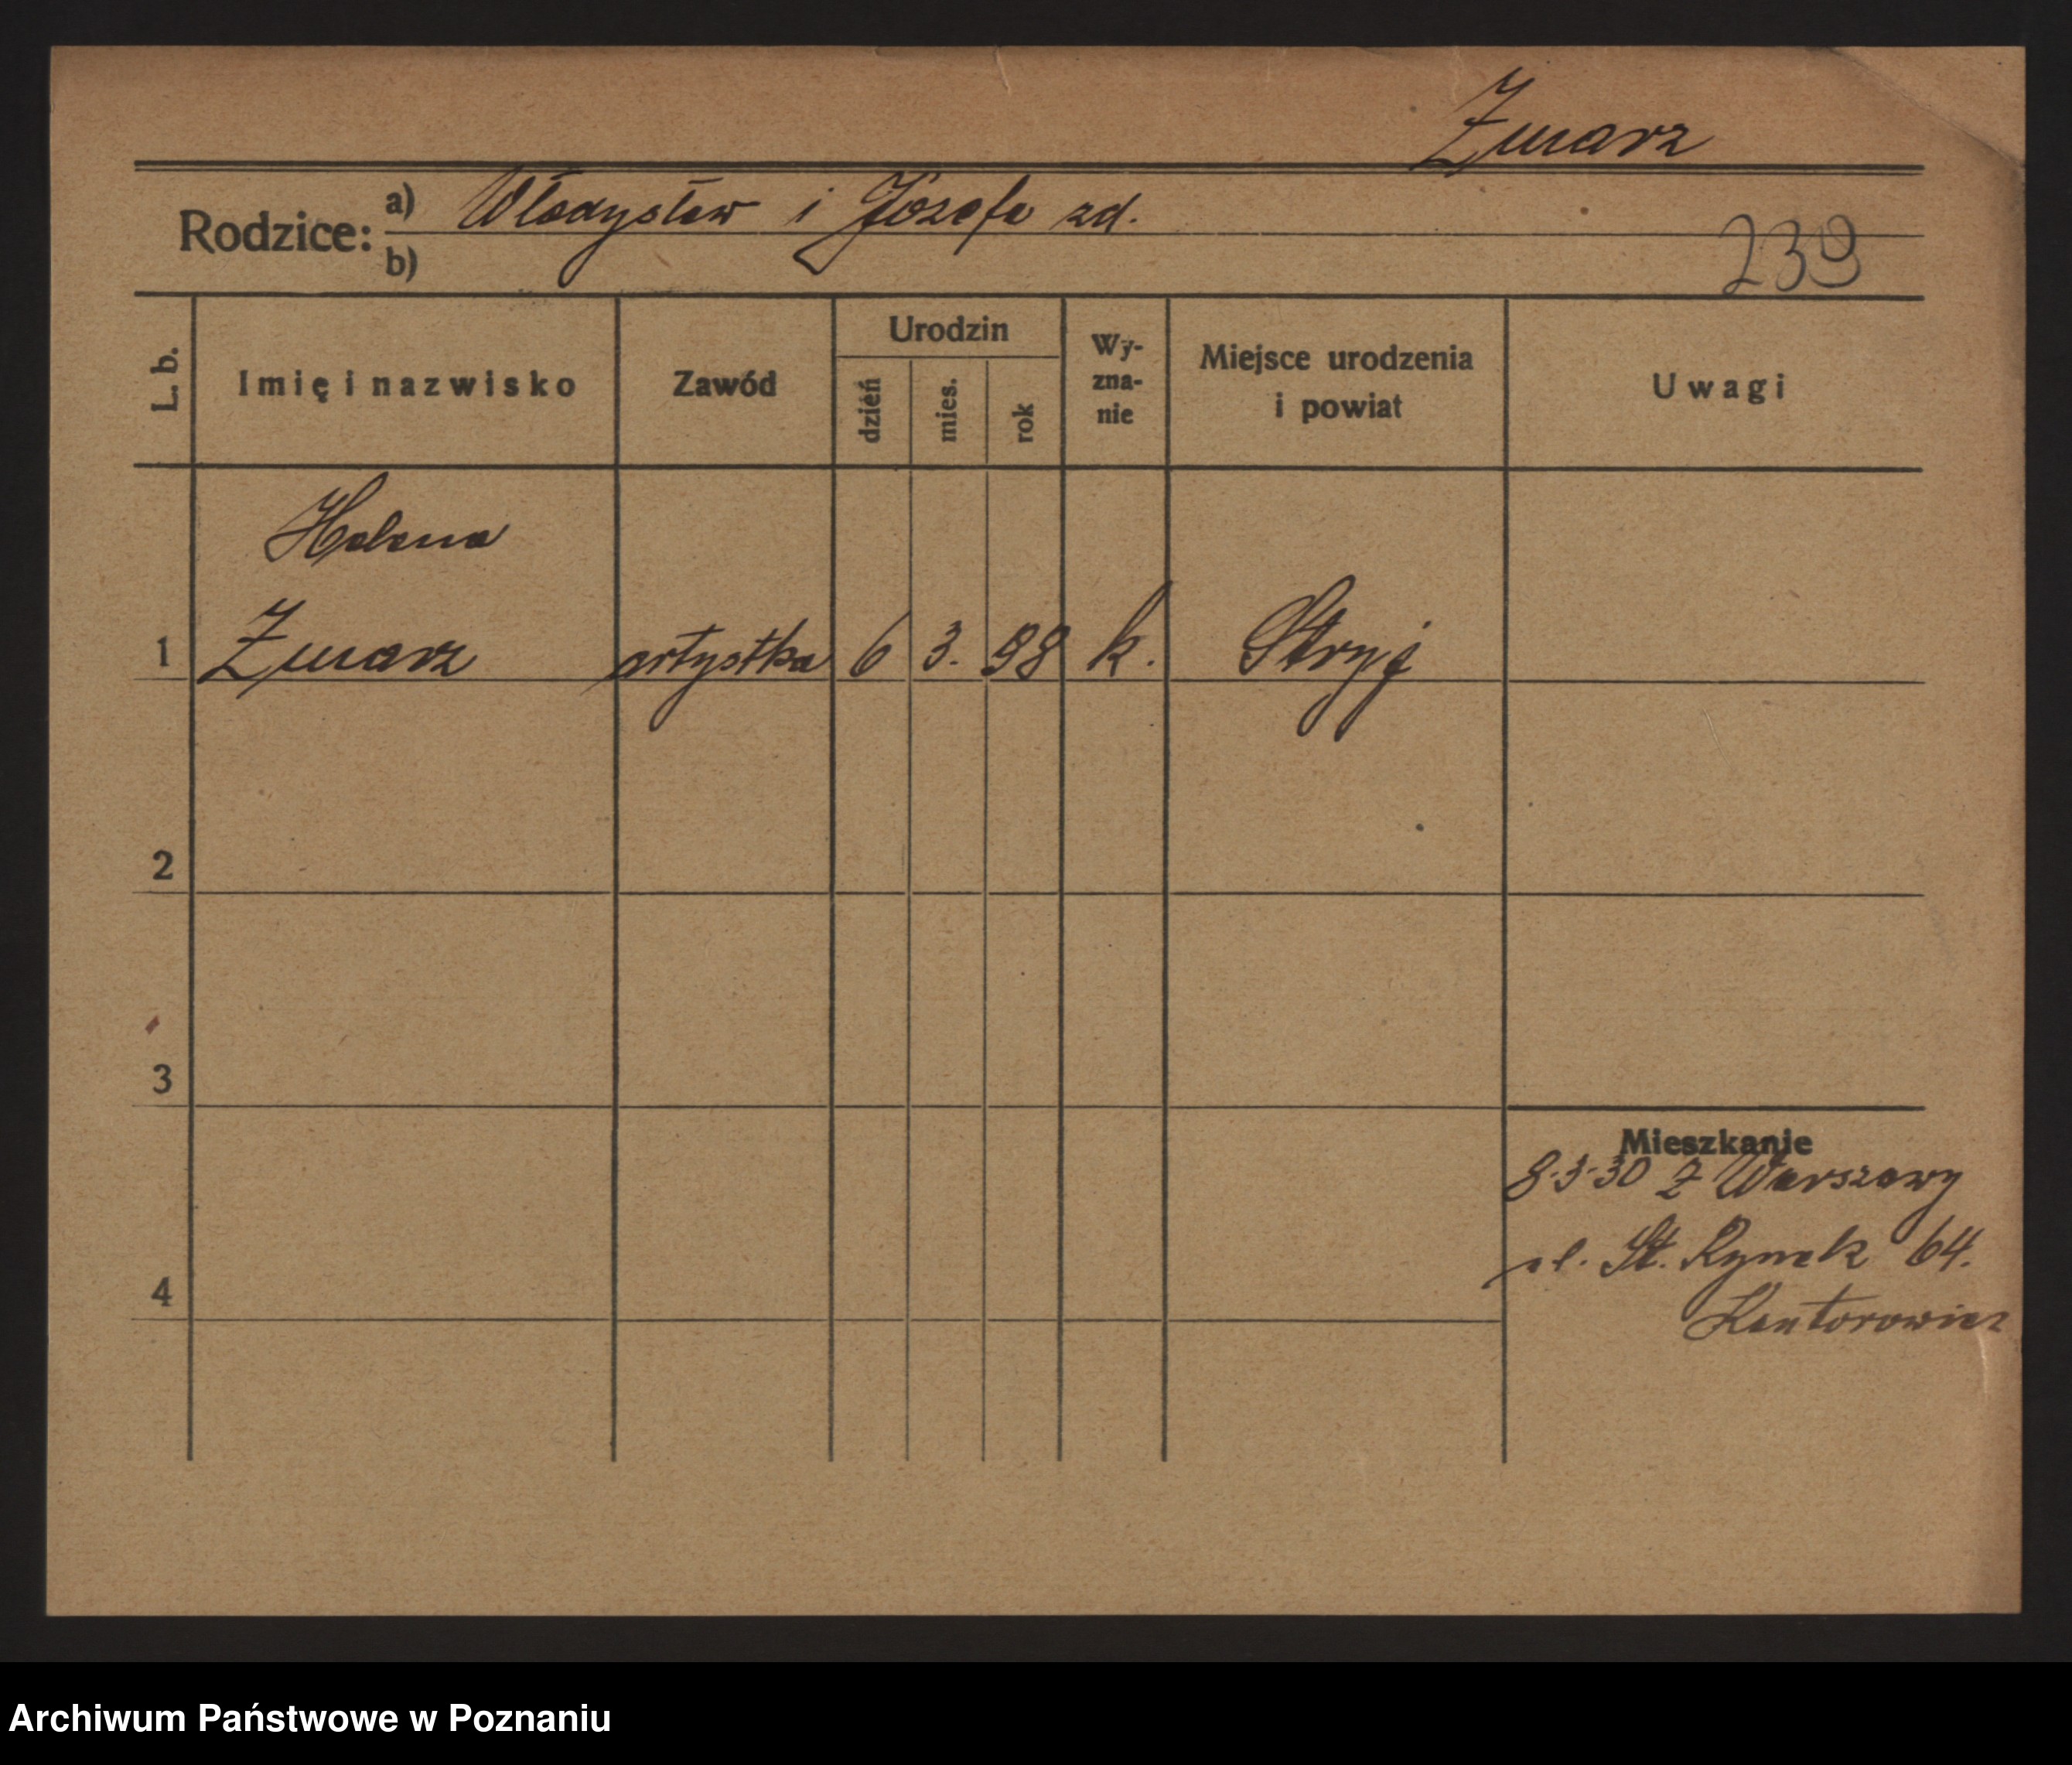 Zmarz
Rodzice: a) Władysław i Józefa zd.
b)
239
L. b. Imię i nazwisko Zawód Urodzin dzień mies. rok Wy-zna-nie Miejsce urodzenia i powiat Uwagi
Helena
1 Zmarz artystka 6 3. 98 k. Stryj
2
3
Mieszkanie
8.3.30 z Warszawy
St. Rynek 64.
4
Kantorowicz
Archiwum Państwowe w Poznaniu